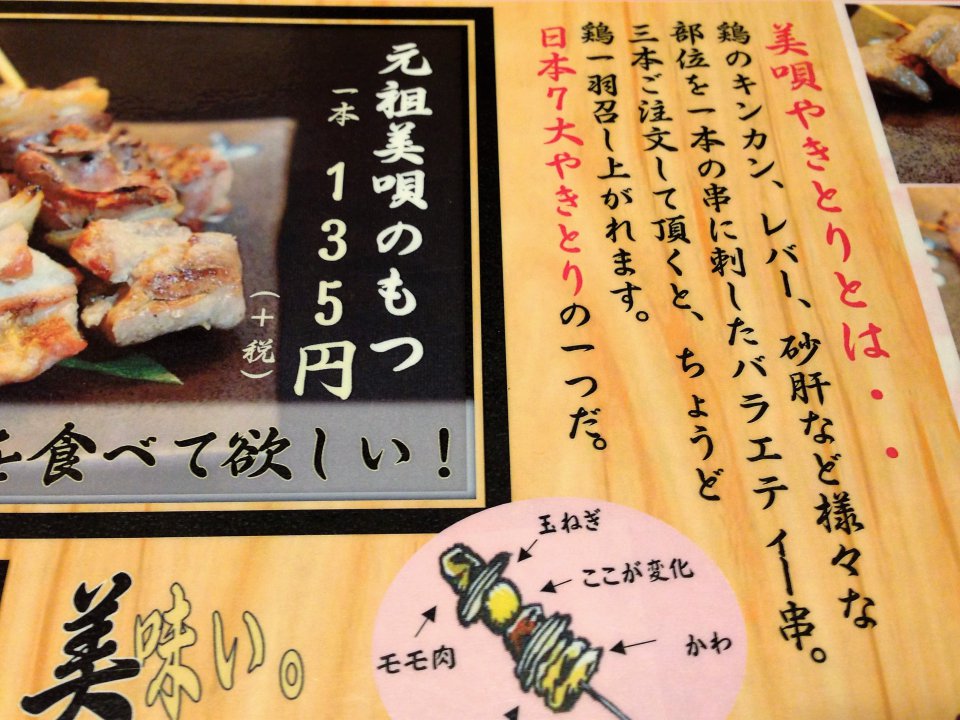 美唄やきとりとは・・
鶏のキンカン、レバー、砂肝など様々な
部位を一本の串に刺したバラエティー串。
三本ご注文して頂くと、ちょうど
鶏一羽召し上がれます。
日本7大やきとりの一つだ。
元祖美唄のもつ
一本 135円
(+税)
を食べて欲しい!
玉ねぎ
ここが変化
モモ肉
かわ
美味い。